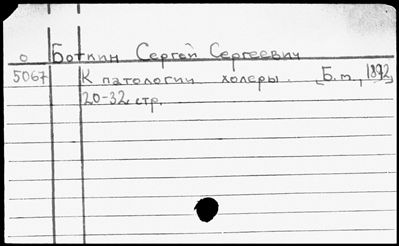 о Боткин Сергей Сергеевич
5067 К патологии холеры. [Б.м., 1892]
20-32 стр.